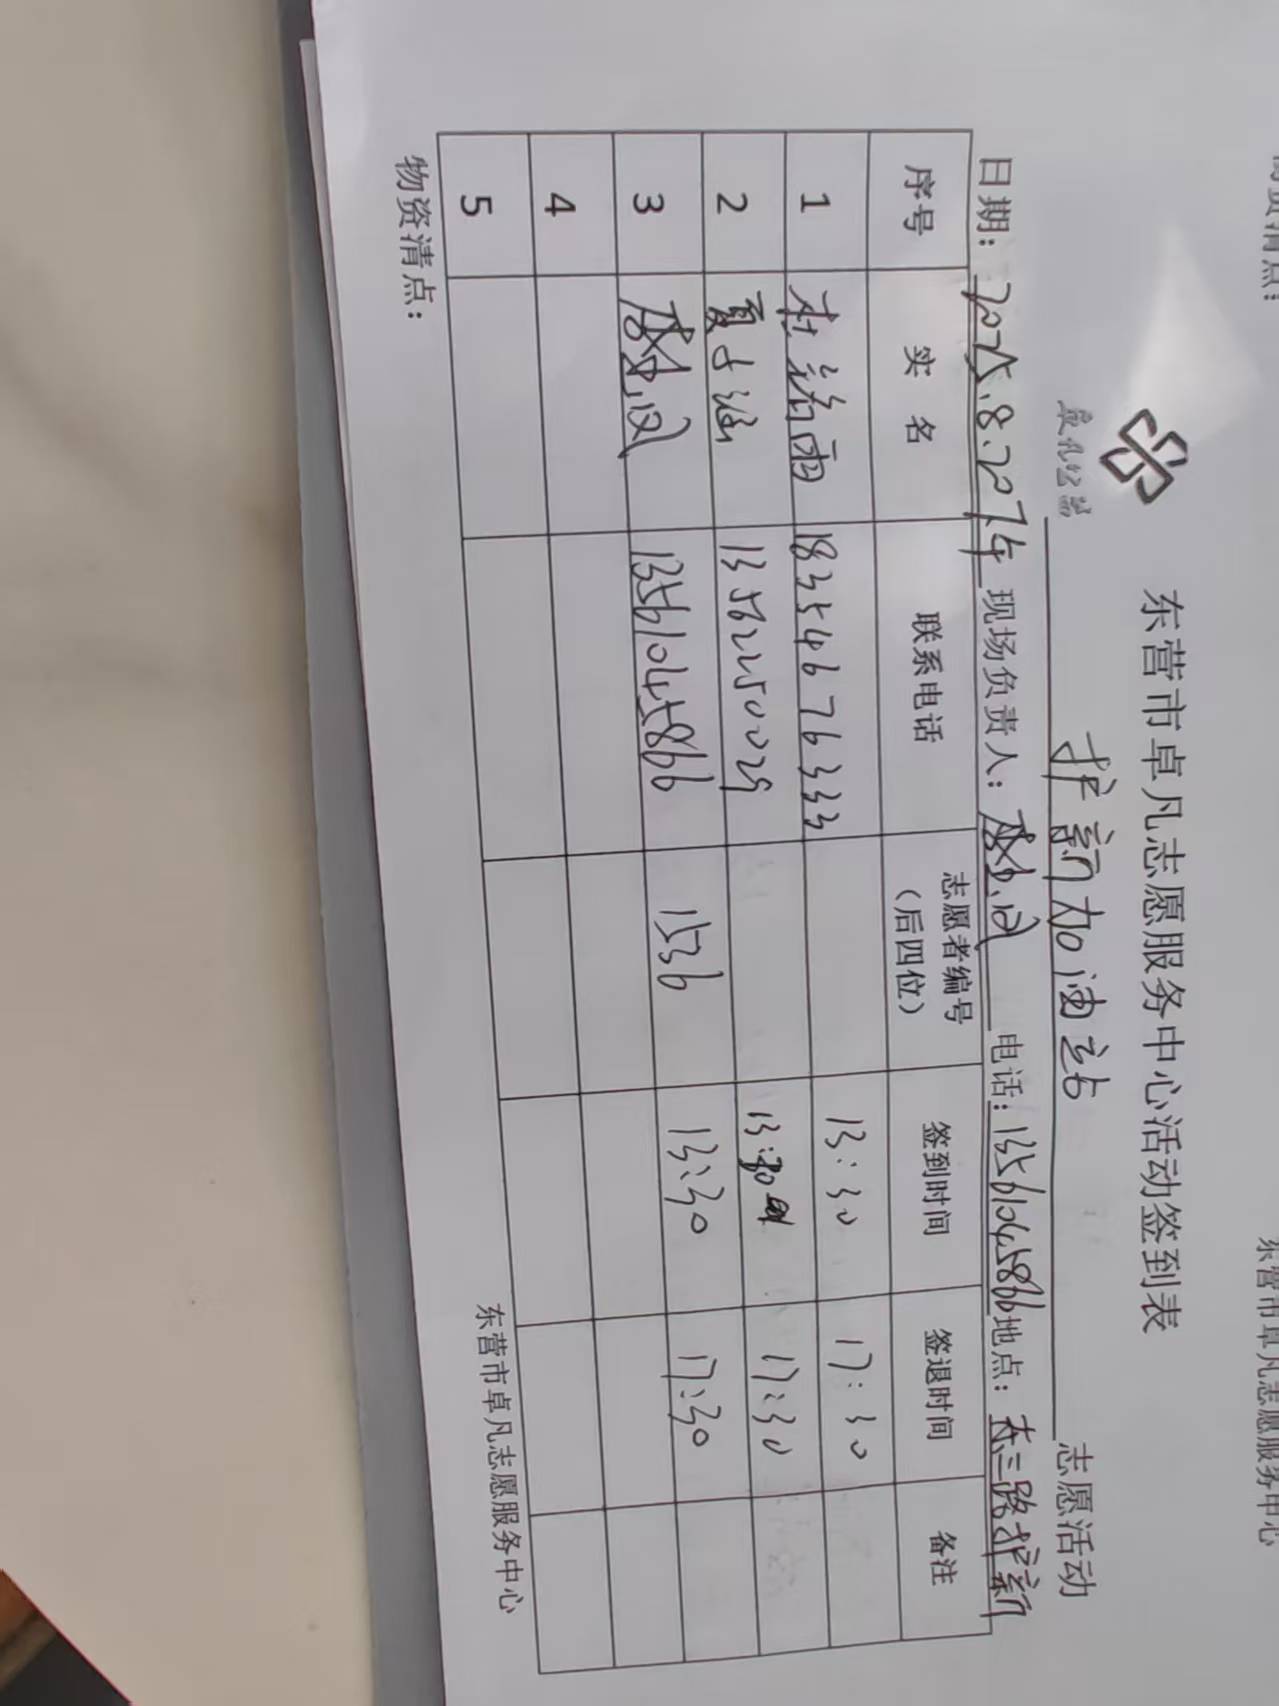 卓凡公益
东营市卓凡志愿服务中心活动签到表
护新加油站 志愿活动
日期：2025.8.20下午 现场负责人： 电话：13561045866 地点：东三路护新
序号 实名 联系电话 志愿者编号（后四位） 签到时间 签退时间 备注
1 杜诺雨 18354676333 13:30 17:30
2 夏子涵 13562250029 13:30 17:30
3 13561045866 1536 13:30 17:30
4
5
物资清点： 东营市卓凡志愿服务中心
东营市卓凡志愿服务中心